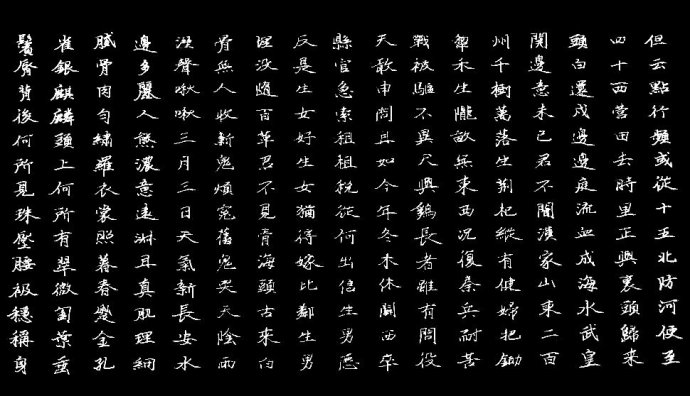 但云點行頻或從十五北防河便至
四十西營田去時里正與裏頭歸來
頭白還戍邊邊庭流血成海水武皇
開邊意未已君不聞漢家山東二百
州千樹萬落生荊杞縱有健婦把鋤
犁禾生隴畝無東西況復秦兵耐苦
戰被驅不異犬與鷄長者雖有問役
夫敢申問且如今年冬未休關西卒
縣官急索租租稅從何出信生男惡
反是生女好生女猶得嫁比鄰生男
埋沒隨百草君不見青海頭古來白
骨無人收新鬼煩冤舊鬼哭天陰雨
濕聲啾啾三月三日天氣新長安水
邊多麗人態濃意遠淑且真肌理細
膩骨肉勻繡羅衣裳照暮春蹙金孔
雀銀麒麟頭上何所有翠微㔩葉垂
鬢唇背後何所見珠壓腰衱穩稱身